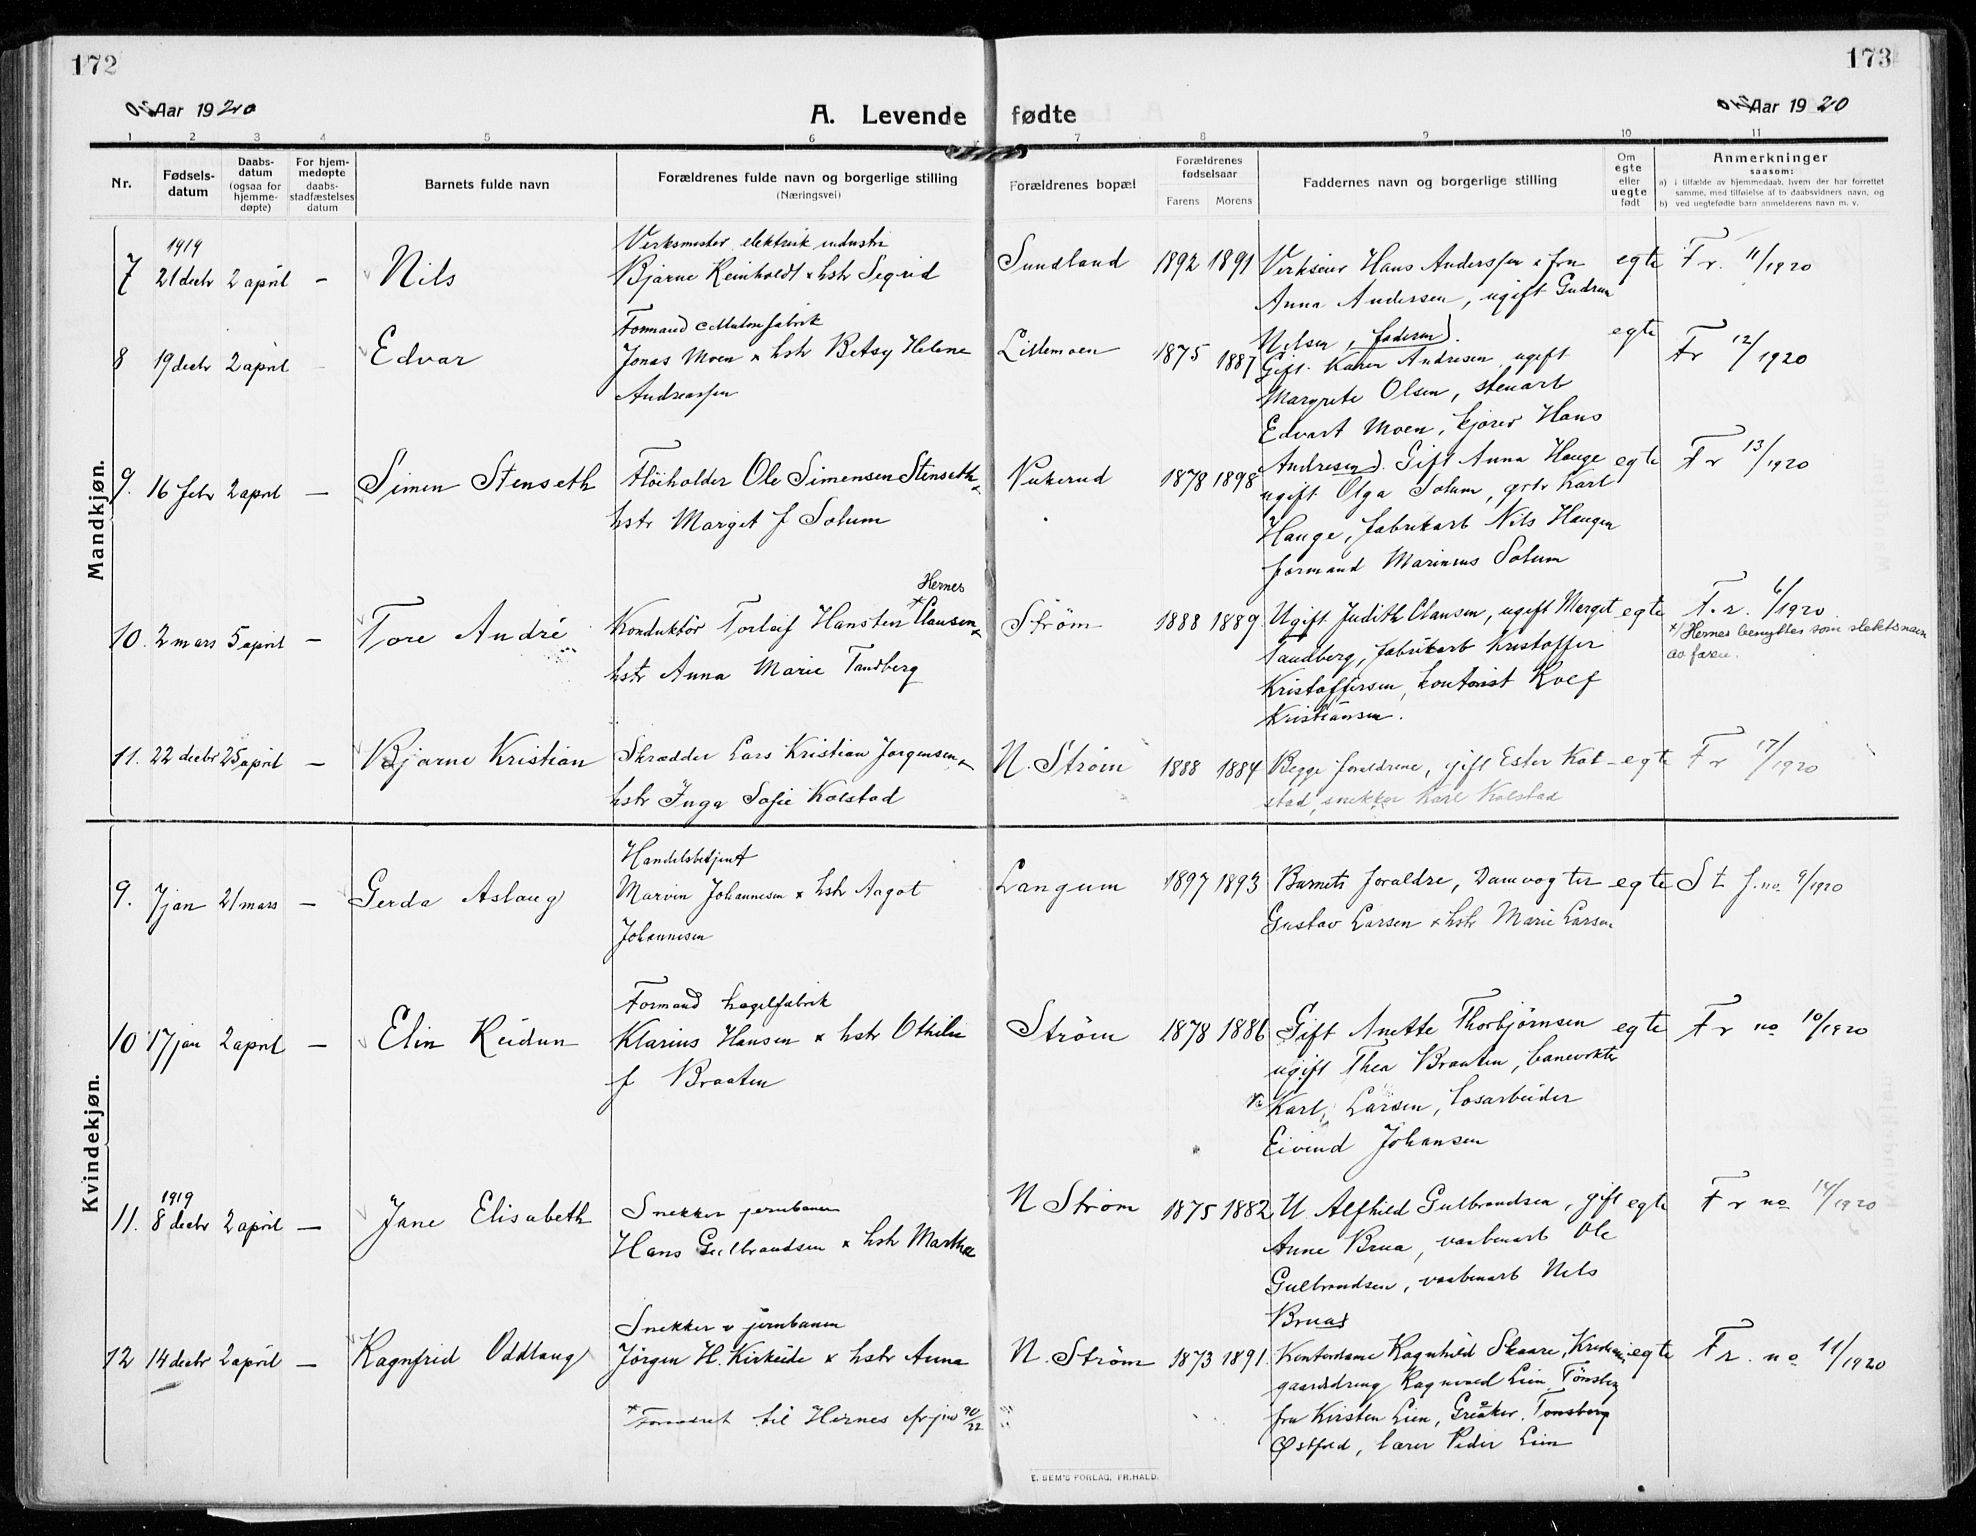 172
173
Aar 1920
A. Levende fødte
Aar 1920
1 2 3 4 5 6 7 8 9 10 11
Nr.
Fødsels-
datum
Daabs-
datum
(ogsaa for
hjemme-
døpte)
For hjem-
medøpte
daabs-
stadfæstelses
datum
Barnets fulde navn
Forældrenes fulde navn og borgerlige stilling
(Næringsvei)
Forældrenes bopæl
Forældrenes
fødselsaar
Farens Morens
Faddernes navn og borgerlige stilling
Om
egte
eller
uegte
født
Anmerkninger
saasom:
a) i tilfælde av hjemmedaab, hvem der har forrettet
samme, med tilføielse af to daabsvidners navn, og
b) ved uegtefødte barn anmelderens navn m. v.
Mandkjøn.
1919
7 21 decbr 2 april – Nils
Verksmester elektrisk industri
Bjarne Reinholdt & hstr Sigrid
Sundland 1892 1891
Verkseier Hans Anderssen & fru
Anna Andersen, ugift Gudrun
Nilsen, faderen).
egte Fr. 11/1920
8 19 decbr 2 april – Edvar
Formand cellulosefabrik
Jonas Moen & hstr Betsy Helene
Andreassen
Lillemoen 1875 1887
Gift Karen Andresen, ugift
Margrete Olsen, stenarb
Edvart Moen, kjører Hans
Andresen).
egte Fr 12/1920
9. 16 febr 2 april – Simen Stenseth
Fløiholder Ole Simensen Stenseth &
hstr Margit f Solum
1878 1898
Gift Anna Hauge
ugift Olga Solum, grbr Karl
Hauge, fabrikarb Nils Haugen
formand Marinius Solum
egte Fr 13/1920
10. 2 mars 5 april – Tore André
Hernes
Konduktør Torleif Hansten * Clausen &
hstr Anna Marie Tandberg
Strøm 1888 1889
Ugift Judith Clausen, ugift Margit
Tandberg, fabrikarb Kristoffer
Kristoffersen, kontorist Rolf
Kristiansen.
egte F.r. 6/1920
*/ Hernes benyttes som slektsnavn
av faren.
11. 22 decbr 25 april – Bjarne Kristian
Skrædder Lars Kristian Jørgensen &
hstr Inga Sofie Kolstad
N. Strøm 1888 1884
Begge forældrene, gift Ester Kol-
stad, snekker Karl Kolstad
egte Fr 17/1920
Kvindekjøn.
9. 7 jan 21 mars – Gerda Aslaug
Handelsbetjent
Marvin Johannesen & hstr Aagot
Johannesen
Langum 1897 1893
Barnets forældre,
Gustav Larsen & hstr Marie Larsen
egte St f. no 9/1920
10 17 jan 2 april – Elin Reidun
Formand hagelfabrik
Klarius Hansen & hstr Othilie
f Braaten
Strøm 1878 1886
Gift Anette Thorbjørnsen
ugift Thea Braaten, banevokter
Karl Larsen, losarbeider
Eivind Johansen
egte Fr no 10/1920
1919
11. 8 decbr 2 april – Jane Elisabeth
Snekker jernbanen
Hans Gulbrandsen & hstr Martha
N Strøm 1875 1882
U. Alfhild Gulbrandsen, gift
Anne Brua, vaabenarb Ole
Gulbrandsen, vaabenarb Nils
Bruas
egte Fr no 14/1920
12 14 decbr 2 april – Ragnfrid Oddlaug
Snekker v jernbanen
Jørgen H. Kirkeide & hstr Anna
N. Strøm 1873 1891
Kontordame Ragnhild Skaare,
gaardsdreng Ragnvald Lien, Tønsberg
fru Kirsten Lien, Greåker, Tønsberg
Østfold, lærer Peder Lien
egte Fr. no 11/1920
* Forandret til Hernes
E. SEM'S FORLAG. FR.HALD.